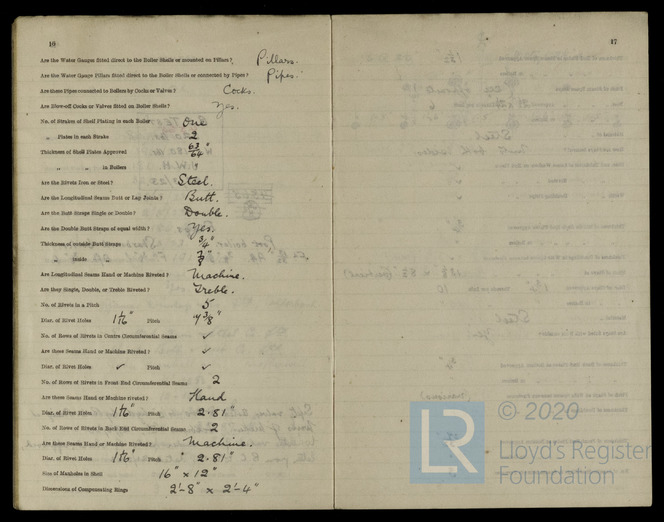 16
Are the Water Gauges fitted direct to the Boiler Shells or mounted on Pillars? Pillars.
Are the Water Gauge Pillars fitted direct to the Boiler Shells or connected by Pipes? Pipes.
Are these Pipes connected to Boilers by Cocks or Valves? Cocks.
Are Blow-off Cocks or Valves fitted on Boiler Shells? Yes.
No. of Strakes of Shell Plating in each Boiler One
„ Plates in each Strake 2
Thickness of Shell Plates Approved 63/64"
„ „ in Boilers "
Are the Rivets Iron or Steel? Steel.
Are the Longitudinal Seams Butt or Lap Joints? Butt.
Are the Butt Straps Single or Double? Double.
Are the Double Butt Straps of equal width? Yes.
Thickness of outside Butt Straps 3/4"
„ inside „
Are Longitudinal Seams Hand or Machine Riveted? Machine.
Are they Single, Double, or Treble Riveted? Treble.
No. of Rivets in a Pitch 5
Diar. of Rivet Holes 1 1/16" Pitch 7 3/8"
No. of Rows of Rivets in Centre Circumferential Seams ✓
Are these Seams Hand or Machine Riveted? ✓
Diar. of Rivet Holes ✓ Pitch ✓
No. of Rows of Rivets in Front End Circumferential Seams 2
Are these Seams Hand or Machine riveted? Hand
Diar. of Rivet Holes 1 1/16" Pitch 2.81"
No. of Rows of Rivets in Back End Circumferential Seams 2
Are these Seams Hand or Machine Riveted? Machine.
Diar. of Rivet Holes 1 1/16" Pitch 2.81"
Size of Manholes in Shell 16" x 12"
Dimensions of Compensating Rings 2'-8" x 2'-4"
17
LR
© 2020
Lloyd's Register
Foundation